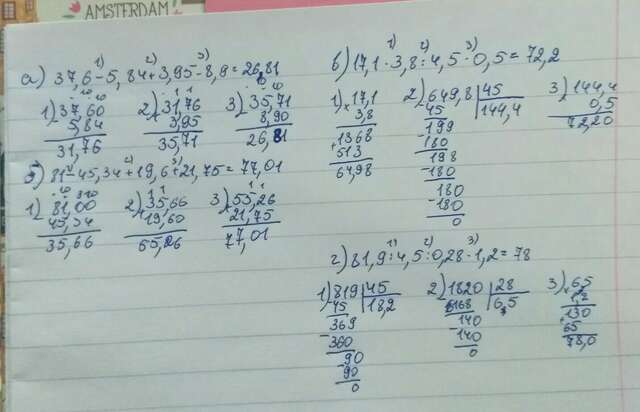 AMSTERDAM
а) 37,6 - 5,84 + 3,95 - 8,9 = 26,81
1) 2) 3)
1) 37,60 2) 31,76 3) 35,71
- 5,84 + 3,95 - 8,90
31,76 35,71 26,81
б) 81 - 45,34 + 19,6 + 21,75 = 77,01
1) 81,00 2) 35,66 3) 55,26
- 45,34 + 19,60 + 21,75
35,66 55,26 77,01
в) 17,1 · 3,8 : 4,5 · 0,5 = 72,2
1) 2) 3)
1) × 17,1 2) 649,8 | 45 3) × 144,4
3,8 - 45 | 144,4 0,5
1368 199 72,20
+ 513 - 180
64,98 198
- 180
180
- 180
0
г) 81,9 : 4,5 : 0,28 · 1,2 = 78
1) 2) 3)
1) 819 | 45 2) 1820 | 28 3) × 65
- 45 | 18,2 - 168 | 6,5 1,2
369 140 130
- 360 - 140 + 65
90 0 78,0
- 90
0